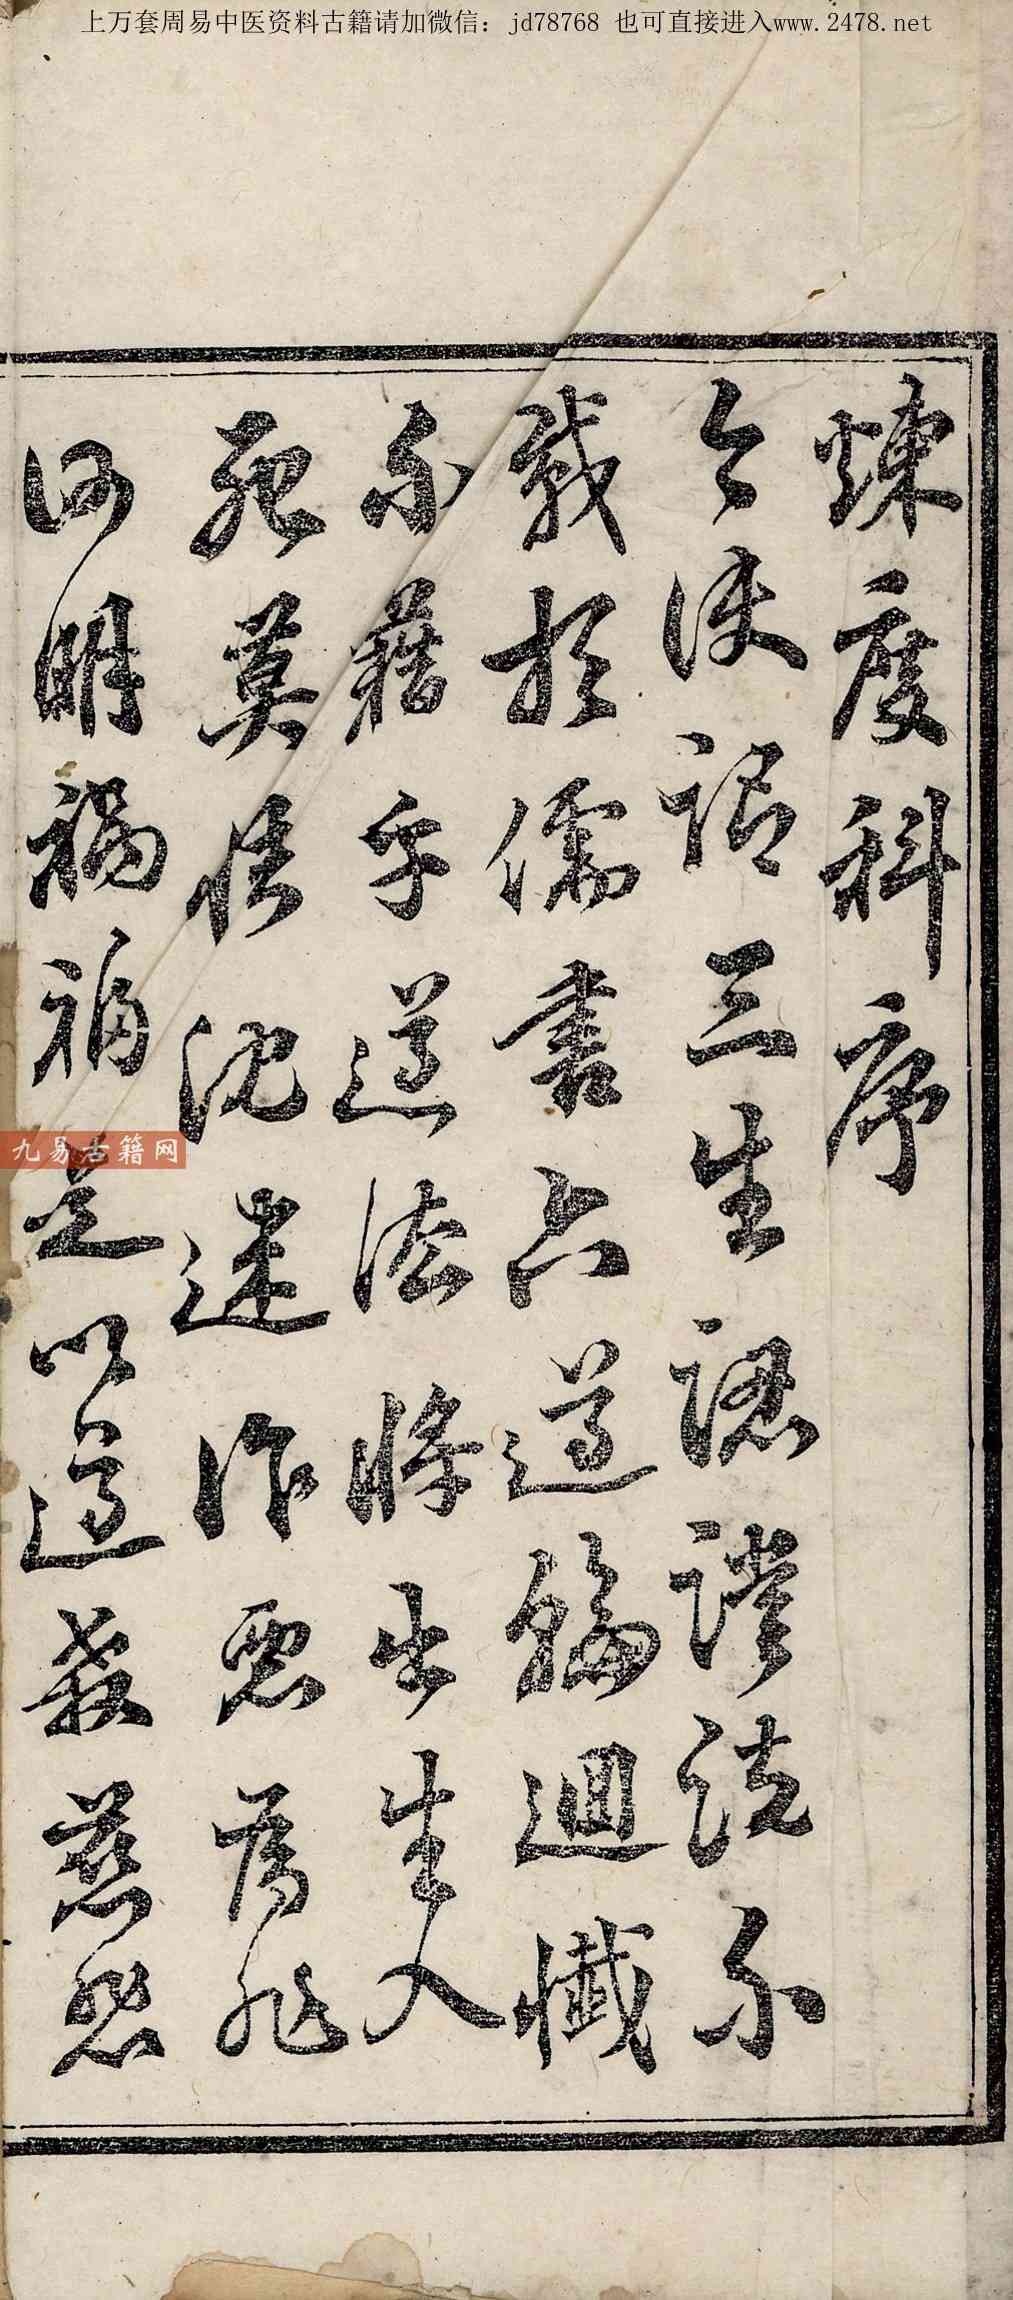 上万套周易中医资料古籍请加微信：jd78768 也可直接进入www.2478.net
煉度科序
今使詔三生認謹法不
載於儒書六道輪迴懺
不藉乎道法將出生入
死莫悟沈迷作惡為非
何明禍福是以道教慈悲
九易古籍网